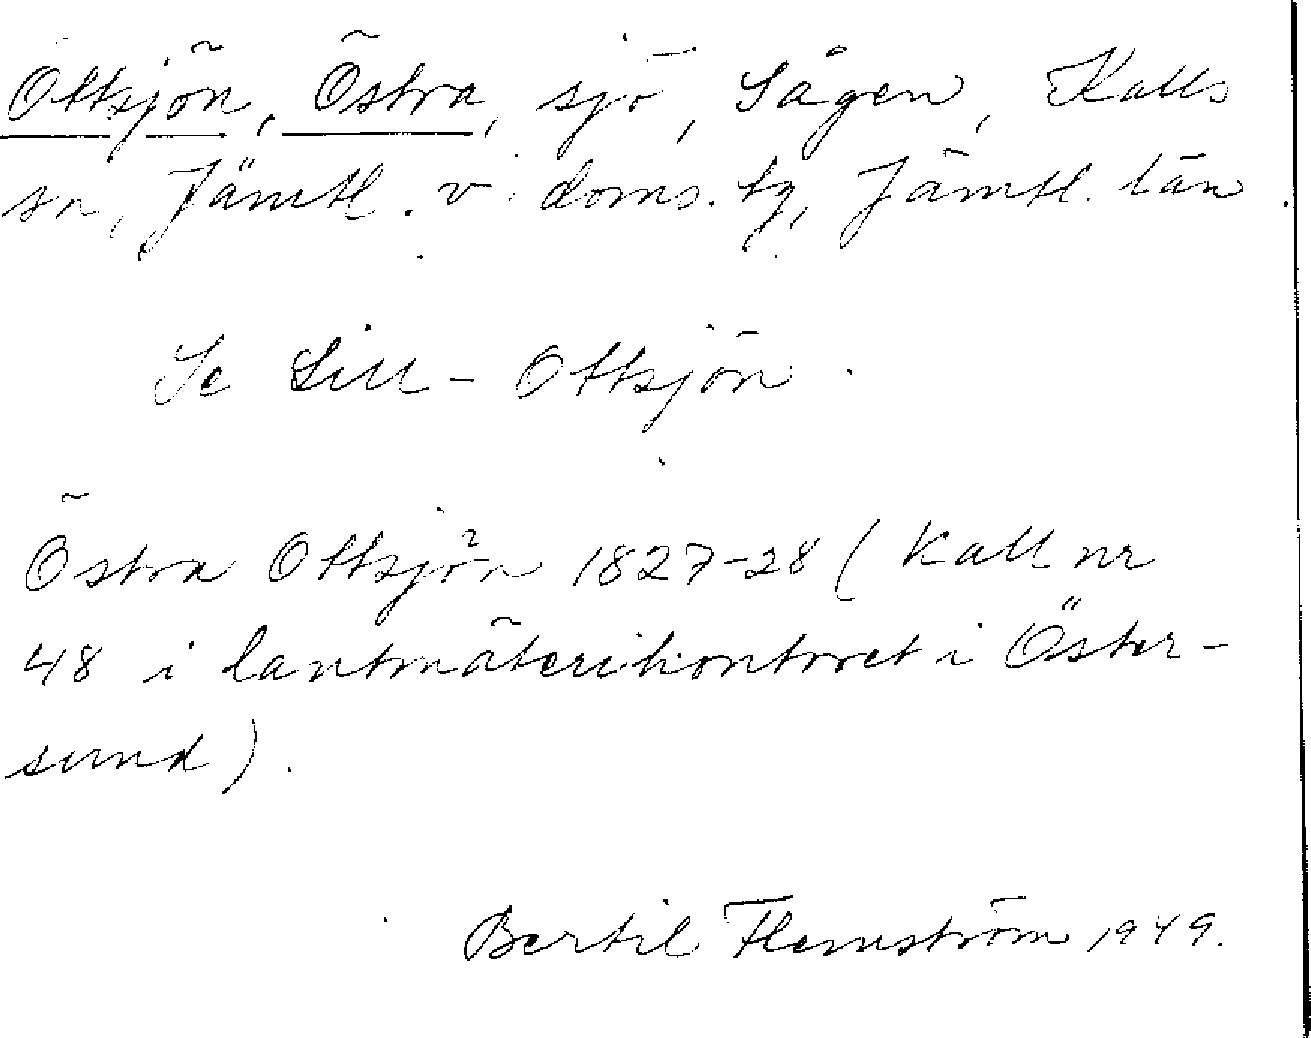 Ottsjön, Östra, sjö, Sågen, Kalls
sn, Jämtl. v. doms. tg, Jämtl. län.
Se Lill-Ottsjön.
Östra Ottsjön 1827-28 (Kall nr
48 i lantmäterikontoret i Öster-
sund).
Bertil Flemström 1949.